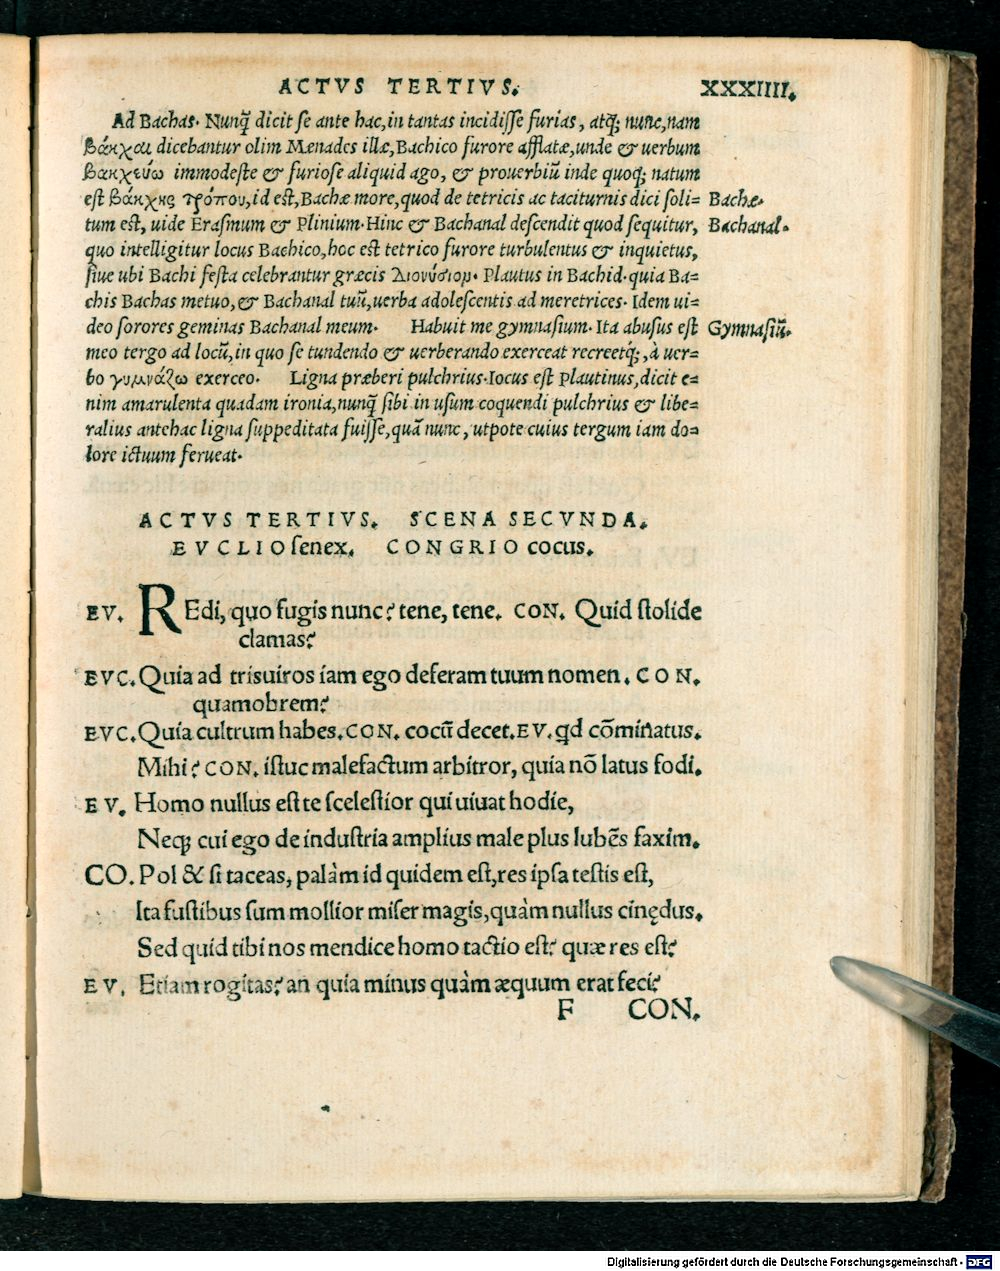 ACTVS TERTIVS. XXXIIII.
Ad Bachas. Nunq̃ dicit se ante hac, in tantas incidisse furias, atq; nunc, nam
βάκχαι dicebantur olim Mænades illæ, Bachico furore afflatæ, unde & uerbum
βακχεύω immodeste & furiose aliquid ago, & prouerbiũ inde quoq; natum
est βάκχης τρόπον, id est, Bachæ more, quod de tetricis ac taciturnis dici soli= Bachæ.
tum est, uide Erasmum & Plinium. Hinc & Bachanal descendit quod sequitur, Bachanal.
quo intelligitur locus Bachico, hoc est tetrico furore turbulentus & inquietus,
siue ubi Bachi festa celebrantur græcis Διονύσιομ. Plautus in Bachid. quia Ba=
chis Bachas metuo, & Bachanal tuũ, uerba adolescentis ad meretrices. Idem ui=
deo sorores geminas Bachanal meum. Habuit me gymnasium. Ita abusus est Gymnasiũ.
meo tergo ad locũ, in quo se tundendo & uerberando exerceat recreetq;, à uer=
bo γυμνάζω exerceo. Ligna præberi pulchrius. Iocus est Plautinus, dicit e=
nim amarulenta quadam ironia, nunq̃ sibi in usum coquendi pulchrius & libe=
ralius antehac ligna suppeditata fuisse, quã nunc, utpote cuius tergum iam do=
lore ictuum ferueat.
ACTVS TERTIVS. SCENA SECVNDA.
EVCLIO senex. CONGRIO cocus.
EV. REdi, quo fugis nunc? tene, tene. CON. Quid stolide
clamas?
EVC. Quia ad trisuiros iam ego deferam tuum nomen. CON.
quamobrem?
EVC. Quia cultrum habes. CON. cocũ decet. EV. qd cõminatus.
Mihi? CON. istuc malefactum arbitror, quia nõ latus fodi.
EV. Homo nullus est te scelestior qui uiuat hodie,
Neq; cui ego de industria amplius male plus lubẽs faxim.
CO. Pol & si taceas, palàm id quidem est, res ipsa testis est,
Ita fustibus sum mollior miser magis, quàm nullus cinędus.
Sed quid tibi nos mendice homo tactio est? quæ res est?
EV. Etiam rogitas? an quia minus quàm æquum erat feci?
F CON.
Digitalisierung gefördert durch die Deutsche Forschungsgemeinschaft - DFG